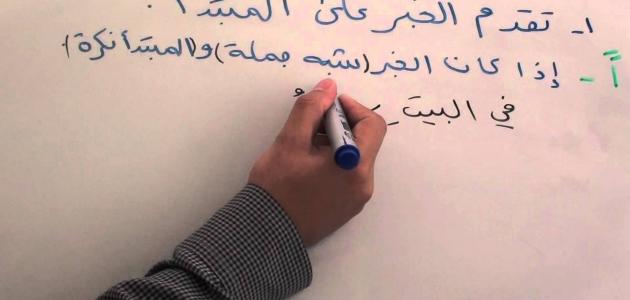 ١- تقدم الخبر على المبتدأ :
أ - إذا كان الخبر (شبه جملة) والمبتدأ نكرة).
في البيتِ